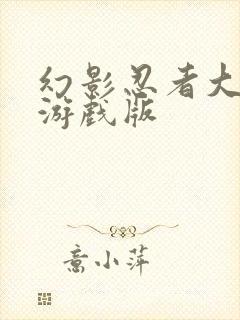 幻影忍者大
游戏版
意小萍